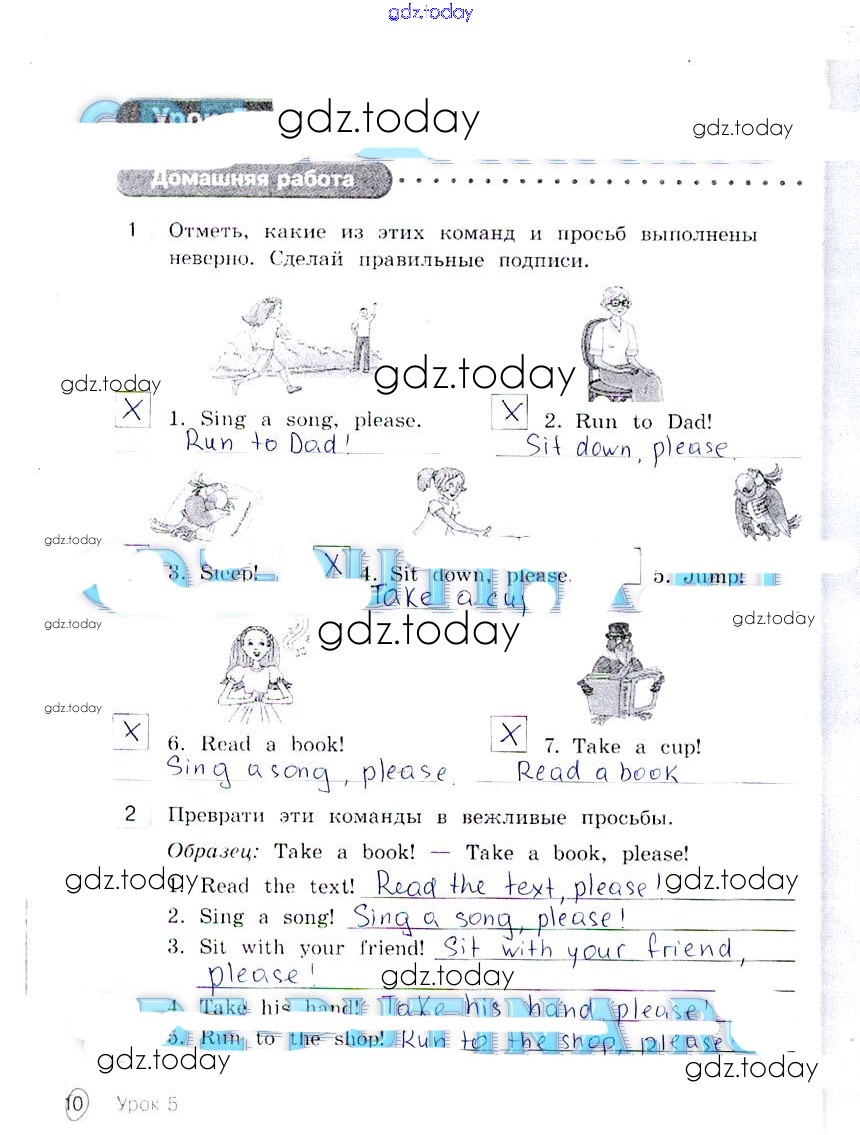 gdz.today
Урок 5 gdz.today gdz.today
Домашняя работа
1 Отметь, какие из этих команд и просьб выполнены
неверно. Сделай правильные подписи.
gdz.today gdz.today
X 1. Sing a song, please. X 2. Run to Dad!
Run to Dad! Sit down, please.
gdz.today
3. Sleep! X 4. Sit down, please. 5. Jump!
Take a cup
gdz.today gdz.today gdz.today
gdz.today
X 6. Read a book! X 7. Take a cup!
Sing a song, please. Read a book
2 Преврати эти команды в вежливые просьбы.
Образец: Take a book! — Take a book, please!
gdz.today 1. Read the text! Read the text, please! gdz.today
2. Sing a song! Sing a song, please!
3. Sit with your friend! Sit with your friend,
please! gdz.today
4. Take his hand! Take his hand, please!
5. Run to the shop! Run to the shop, please
gdz.today gdz.today
10 Урок 5